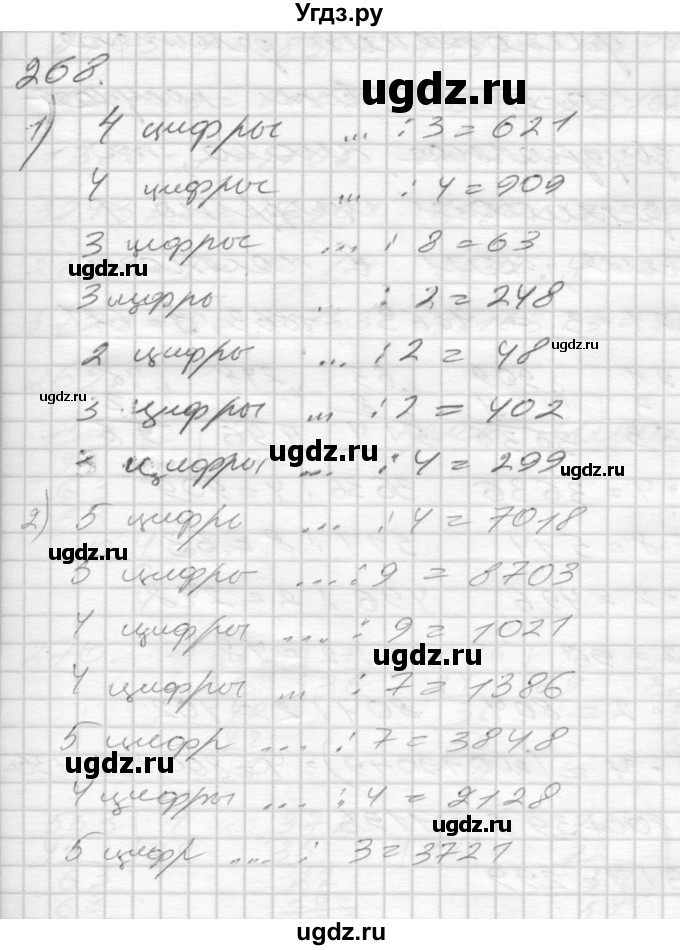 Угдз.ру
268.
ugdz.ru
1) 4 цифры ... : 3 = 621
4 цифры ... : 4 = 909
3 цифры ... : 8 = 63
ugdz.ru
3 цифры : 2 = 248
2 цифры ... : 2 = 48
ugdz.ru
ugdz.ru
3 цифры ... : 2 = 402
ugdz.ru
цифры ... : 4 = 299
ugdz.ru
2) 5 цифр ... : 4 = 7018
ugdz.ru
5 цифр .... : 9 = 8703
4 цифры .... : 9 = 1021
ugdz.ru
4 цифры ... : 7 = 1386
5 цифр .... : 7 = 3848
ugdz.ru
4 цифры .... : 4 = 2128
ugdz.ru
5 цифр .... : 3 = 3721
ugdz.ru